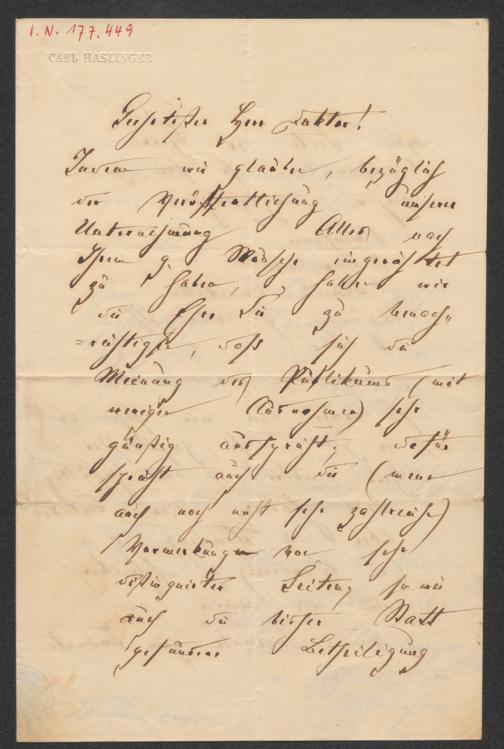 I. N. 177.449
CARL HASLINGER
Geehrtester Herr Doktor!
Indem wir glauben, bezüglich
der Veröffentlichung unserer
Unternehmung Alles nach
Ihrem g. Wunsche eingerichtet
zu haben, haben wir
die Ehre Sie zu benach„
=richtigen, daß sich die
Meinung des Publikums (mit
weniger Ausnahmen) sehr
günstig ausspricht, dafür
spricht auch die (wenn
auch noch nicht sehr zahlreiche)
Vormerkungen von sehr
distinguirten Seiten, so wie
auch die bisher Statt
gefundene Betheiligung